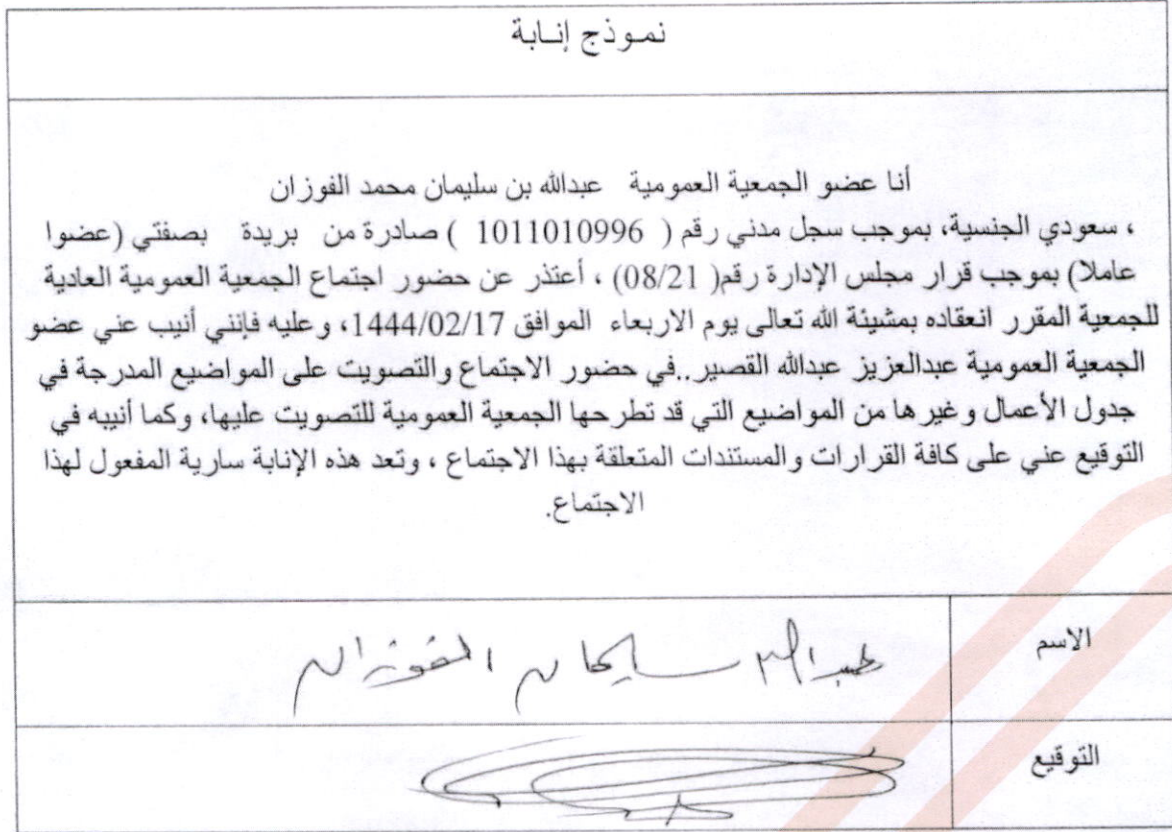 نموذج إنابة
أنا عضو الجمعية العمومية عبدالله بن سليمان محمد الفوزان
، سعودي الجنسية، بموجب سجل مدني رقم ( 1011010996 ) صادرة من بريدة بصفتي (عضوا
عاملا) بموجب قرار مجلس الإدارة رقم( 08/21) ، أعتذر عن حضور اجتماع الجمعية العمومية العادية
للجمعية المقرر انعقاده بمشيئة الله تعالى يوم الاربعاء الموافق 1444/02/17، وعليه فإنني أنيب عني عضو
الجمعية العمومية عبدالعزيز عبدالله القصير..في حضور الاجتماع والتصويت على المواضيع المدرجة في
جدول الأعمال وغيرها من المواضيع التي قد تطرحها الجمعية العمومية للتصويت عليها، وكما أنيبه في
التوقيع عني على كافة القرارات والمستندات المتعلقة بهذا الاجتماع ، وتعد هذه الإنابة سارية المفعول لهذا
الاجتماع.
الاسم عبدالله سليمان الفوزان
التوقيع